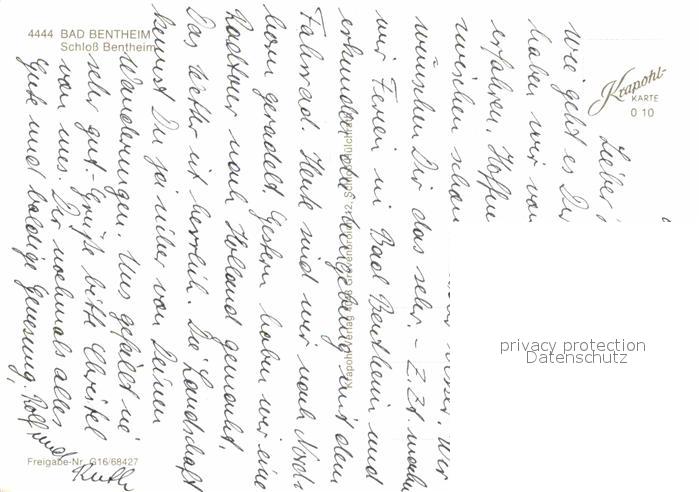 4444 BAD BENTHEIM
Schloß Bentheim
Krapohl-
KARTE
0 10
Lieber
wie geht es Dir
haben wir von
erfahren. Hoffen
zwischen schon
besser. Wir
wünschen Dir das sehr. - Z.Zt. machen
wir Ferien in Bad Bentheim und
erkunden die Umgebung mit dem
Fahrrad. Heute sind wir nach Nord-
horn geradelt. Gestern haben wir eine
Radtour nach Holland gemacht.
Das Wetter ist herrlich. Die Landschaft
kennst Du ja sicher von Deinen
Wanderungen. Uns gefällt sie
sehr gut. - Grüße bitte Christel
von uns. Dir nochmals alles
Gute und baldige Genesung. Rolf und
Ruth
Krapohl-Verlag Grevenbroich 2, Schloß Hülchrath
Freigabe-Nr. G16/68427
privacy protection
Datenschutz